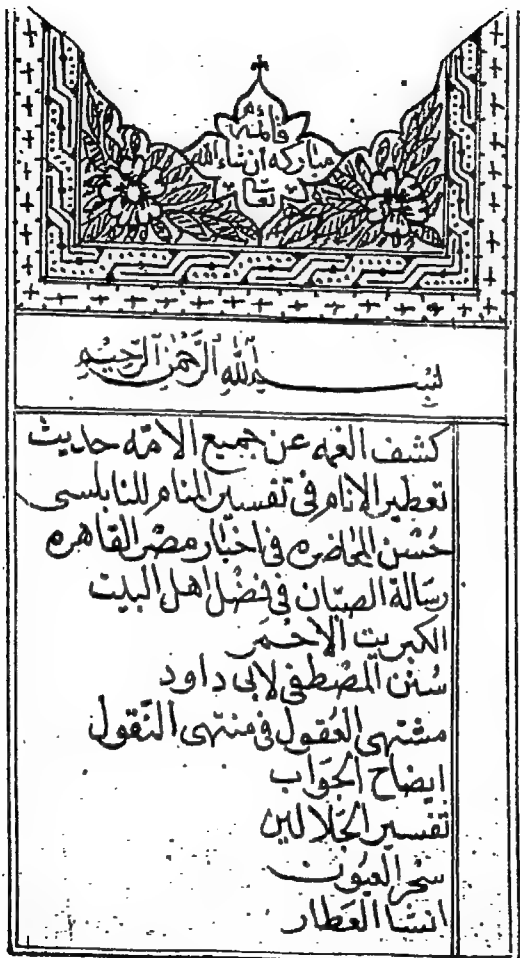 قائمة
مباركه ان شاء الله
تعا
بسم الله الرحمن الرحيم
كشف الغمه عن جميع الامه حديث
تعطير الانام فى تفسير المنام للنابلسى
حُسْن المحاضره فى اخبار مصر القاهره
رسالة الصبّان فى فضل اهل البيت
الكبريت الاحمر
سُنن المصطفى لابى داود
مشتهى العُقول فى منتهى النّقول
ايضاح الجَواب
تفسير الجَلالين
سحر العيُون
انشا العَطار